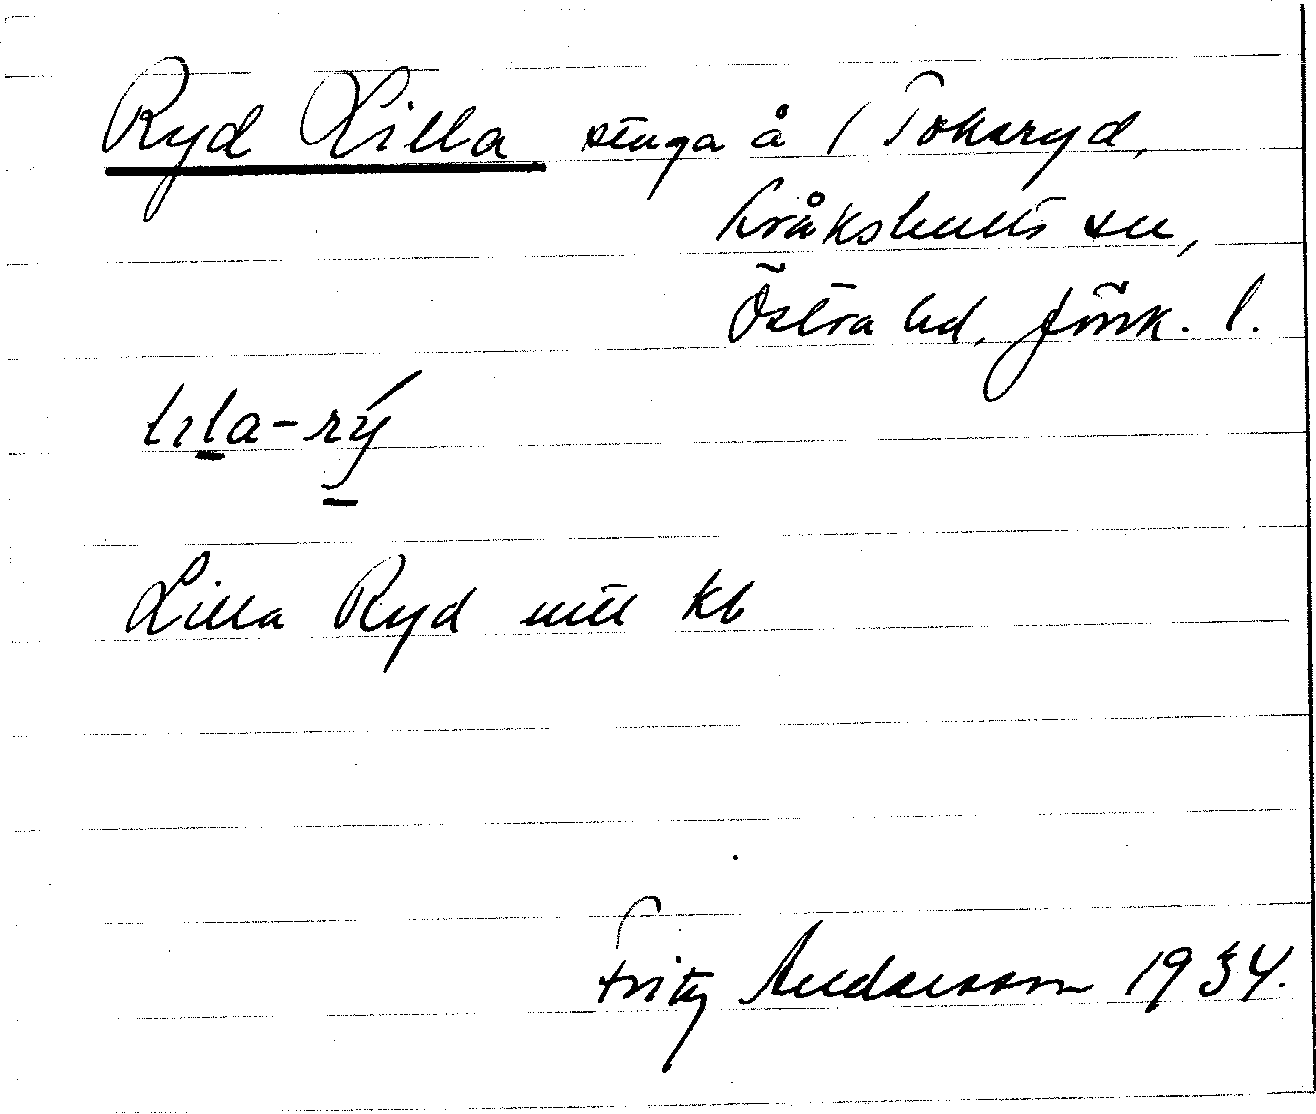 Ryd Lilla stuga å 1 Toksryd,
Kråkshults sn,
Östra hd, Jönk. l.
lıla-rý
Lilla Ryd utt kb
Fritz Andersson 1934.